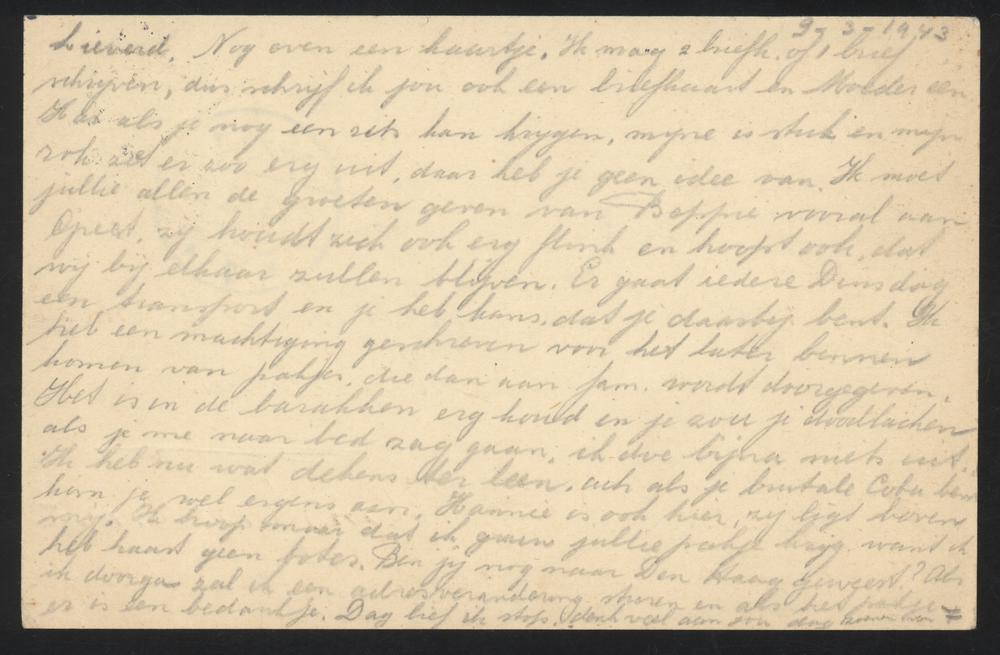 9-3-1943
Lieverd, Nog even een kaartje. Ik mag 2 briefk. of 1 brief
schrijven, dus schrijf ik jou ook een briefkaart en Moeder een.
als je nog een rits kan krijgen, mijne is stuk en mijn
rok ziet er zoo erg uit, daar heb je geen idee van. Ik moet
jullie allen de groeten geven van Beppie vooral aan
zij houdt zich ook erg flink en hoopt ook, dat
wij bij elkaar zullen blijven. Er gaat iedere Dinsdag
een transport en je heb kans, dat je daarbij bent. Ik
heb een machtiging geschreven voor het later binnen
komen van pakjes, die dan aan fam. wordt doorgegeven.
Het is in de barakken erg koud en je zou je doodlachen
als je me naar bed zag gaan, ik doe bijna niets uit.
Ik heb nu wat dekens ter leen, ach als je brutale Cobu bent
kom je wel ergens aan. Hannie is ook hier, zij ligt boven
mij. Ik hoop maar dat ik gauw jullie pakje krijg want ik
heb haast geen boter. Ben jij nog naar Den Haag geweest? Als
ik doorga zal ik een adresverandering sturen en als het pakje
er is een bedankje. Dag lief ik stop, denk veel aan jou dag